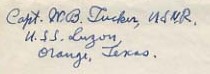 Capt. W.B. Tucker, U.S.N.R.
U.S.S. Luzon,
Orange, Texas.